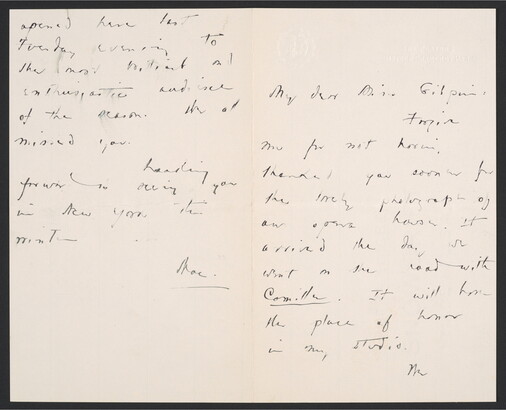 My dear Miss Gilpin,
Forgive
me for not having
thanked you sooner for
the lovely photograph of
our opera house. It
arrived the day we
went on the road with
Camille. It will have
the place of honor
in my studio.
We
opened here last
Tuesday evening to
the most brilliant and
enthusiastic audience
of the season. We all
missed you.
forward to seeing you
in New York this
winter